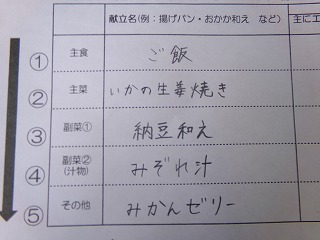 献立名(例：揚げパン・おかか和え など)
主にエ
① 主食 ご飯
② 主菜 いかの生姜焼き
③ 副菜① 納豆和え
④ 副菜②
(汁物) みぞれ汁
⑤ その他 みかんゼリー